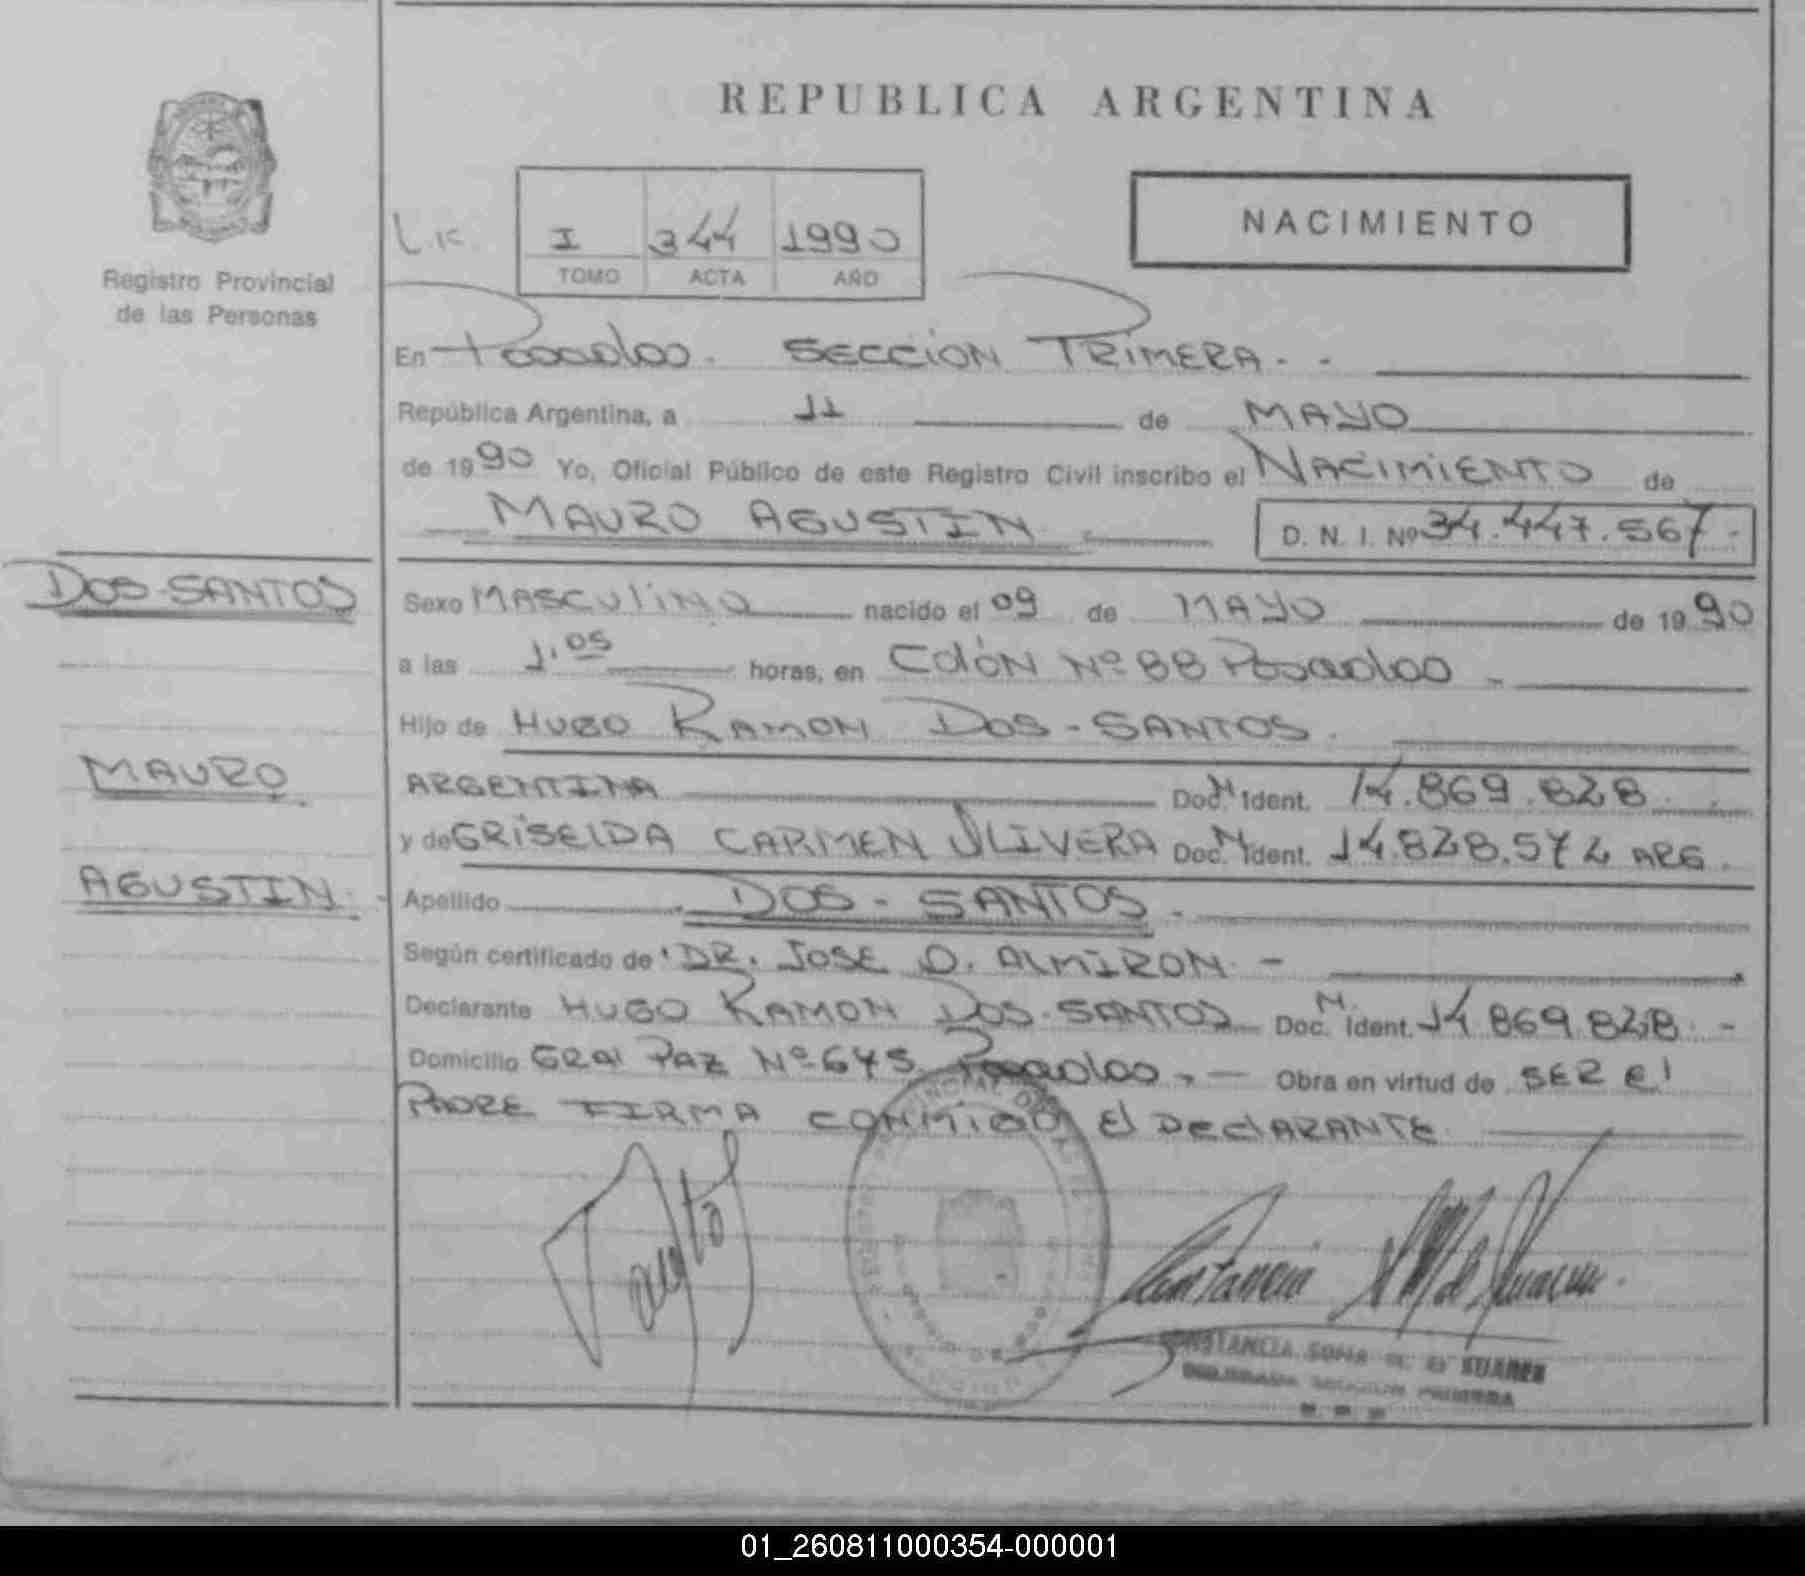 REPUBLICA ARGENTINA
Registro Provincial
de las Personas
I 344 1990
TOMO ACTA AÑO
NACIMIENTO
En Posadas. SECCION PRIMERA. -
República Argentina, a 11 de MAYO
de 1990 Yo, Oficial Público de este Registro Civil inscribo el NACIMIENTO de
MAURO AGUSTIN D. N. I. Nº 34.447.567-
DOS-SANTOS
MAURO
AGUSTIN. -
Sexo MASCULINO nacido el 09 de MAYO de 1990
a las 1.05 horas, en COLÓN Nº 88 Posadas -
Hijo de HUGO RAMON DOS-SANTOS.
ARGENTINA Doc. N. Ident. 14.869.828.
y de GRISELDA CARMEN OLIVERA Doc. N. Ident. 14.828.572 ARG.
Apellido DOS-SANTOS.
Según certificado de DR. JOSE O. ALMIRON. -
Declarante HUGO RAMON DOS-SANTOS Doc. N. Ident. 14.869.828. -
Domicilio GRAL PAZ Nº 675 Posadas. - Obra en virtud de SER El
PADRE FIRMA CONMIGO El DEClARANTE
CONSTANCIA SUAREZ
SECCION PRIMERA
01_260811000354-000001